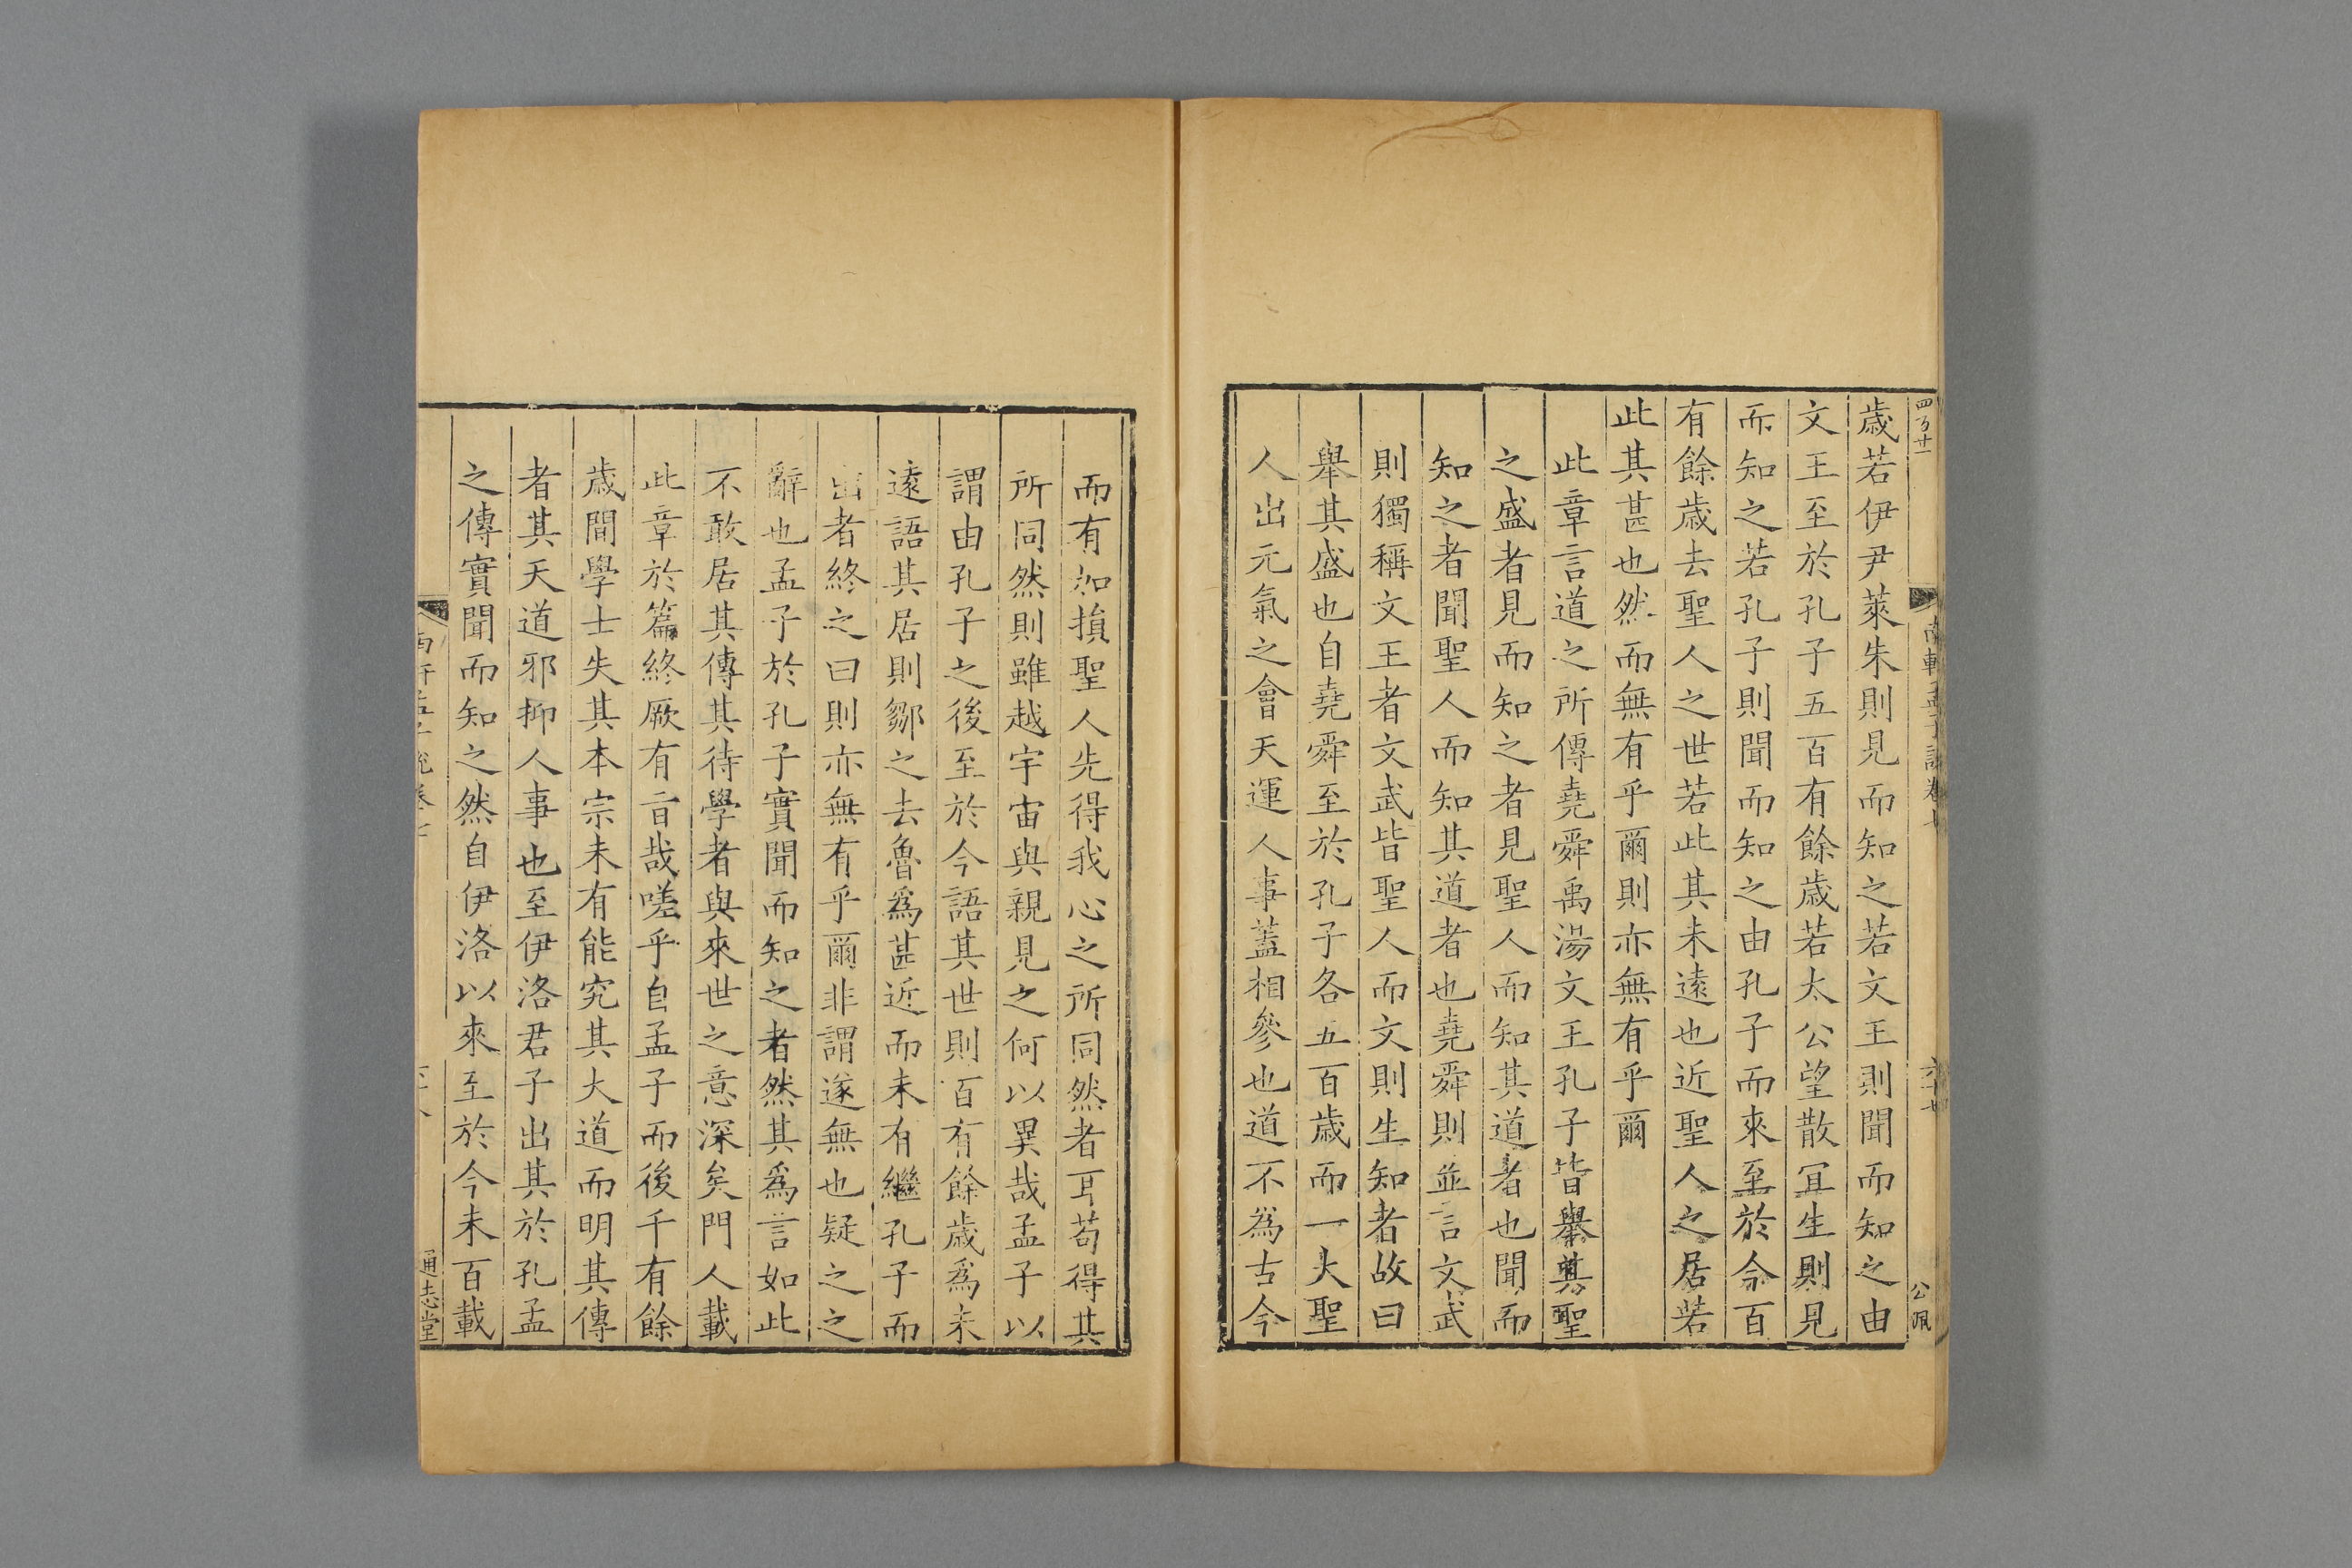 四百廿一
南軒孟子說卷七
六十七
公佩
歳若伊尹萊朱則見而知之若文王則聞而知之由
文王至於孔子五百有餘歳若太公望散冝生則見
而知之若孔子則聞而知之由孔子而來至於今百
有餘歳去聖人之世若此其未遠也近聖人之居若
此其甚也然而無有乎爾則亦無有乎爾
此章言道之所傳堯舜禹湯文王孔子皆舉其聖
之盛者見而知之者見聖人而知其道者也聞而
知之者聞聖人而知其道者也堯舜則並言文武
則獨稱文王者文武皆聖人而文則生知者故曰
舉其盛也自堯舜至於孔子各五百歳而一大聖
人出元氣之會天運人事蓋相參也道不爲古今
而有加損聖人先得我心之所同然者耳苟得其
所同然則雖越宇宙與親見之何以異哉孟子以
謂由孔子之後至於今語其世則百有餘歳爲未
遠語其居則鄒之去魯爲甚近而未有繼孔子而
出者終之曰則亦無有乎爾非謂遂無也疑之之
辭也孟子於孔子實聞而知之者然其爲言如此
不敢居其傳其待學者與來世之意深矣門人載
此章於篇終厥有旨哉嗟乎自孟子而後千有餘
歳間學士失其本宗未有能究其大道而明其傳
者其天道邪抑人事也至伊洛君子出其於孔孟
之傳實聞而知之然自伊洛以來至於今未百載
南軒孟子說卷七
六十八
通志堂